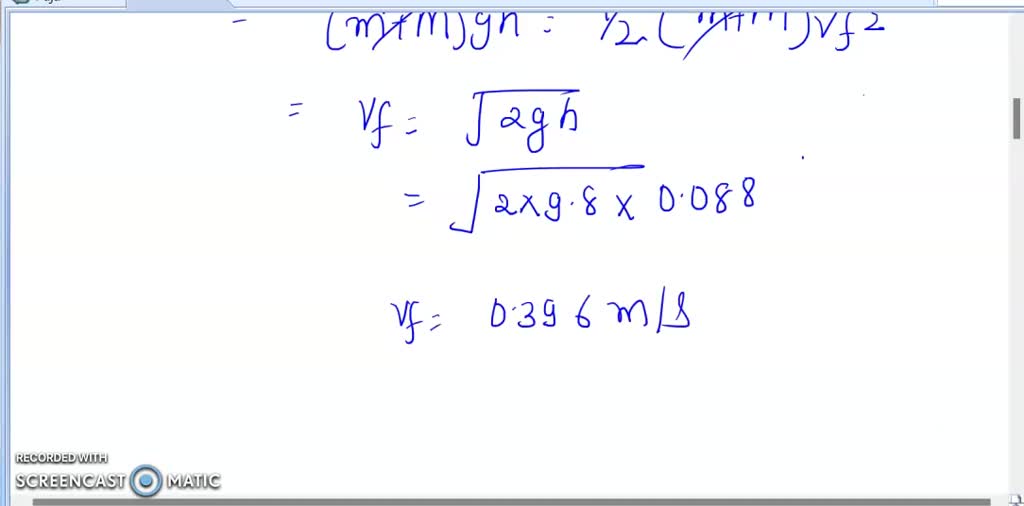 - (m+M)gh = 1/2 (m+M)Vf2
= Vf = √2gh
= √2×9.8× 0.088
Vf = 0.396 m/s
RECORDED WITH
SCREENCAST MATIC